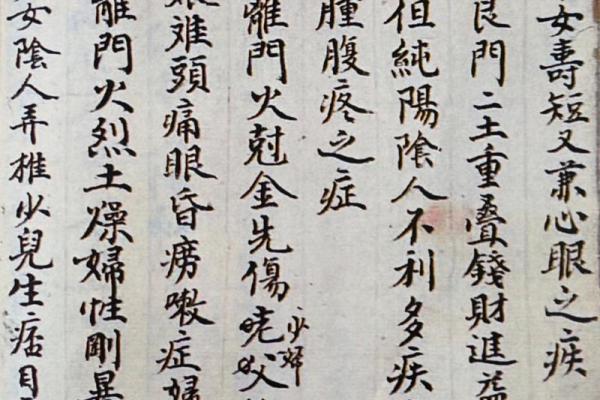 女壽短又兼心眼之疾
艮門二土重疊錢財進益
但純陽陰人不利多疾
腫腹疼之症
離門火尅金先傷父少婦
难頭痛眼昏癆嗽症婦
離門火烈土燥婦性剛暴
女陰人弄椎少兒生目